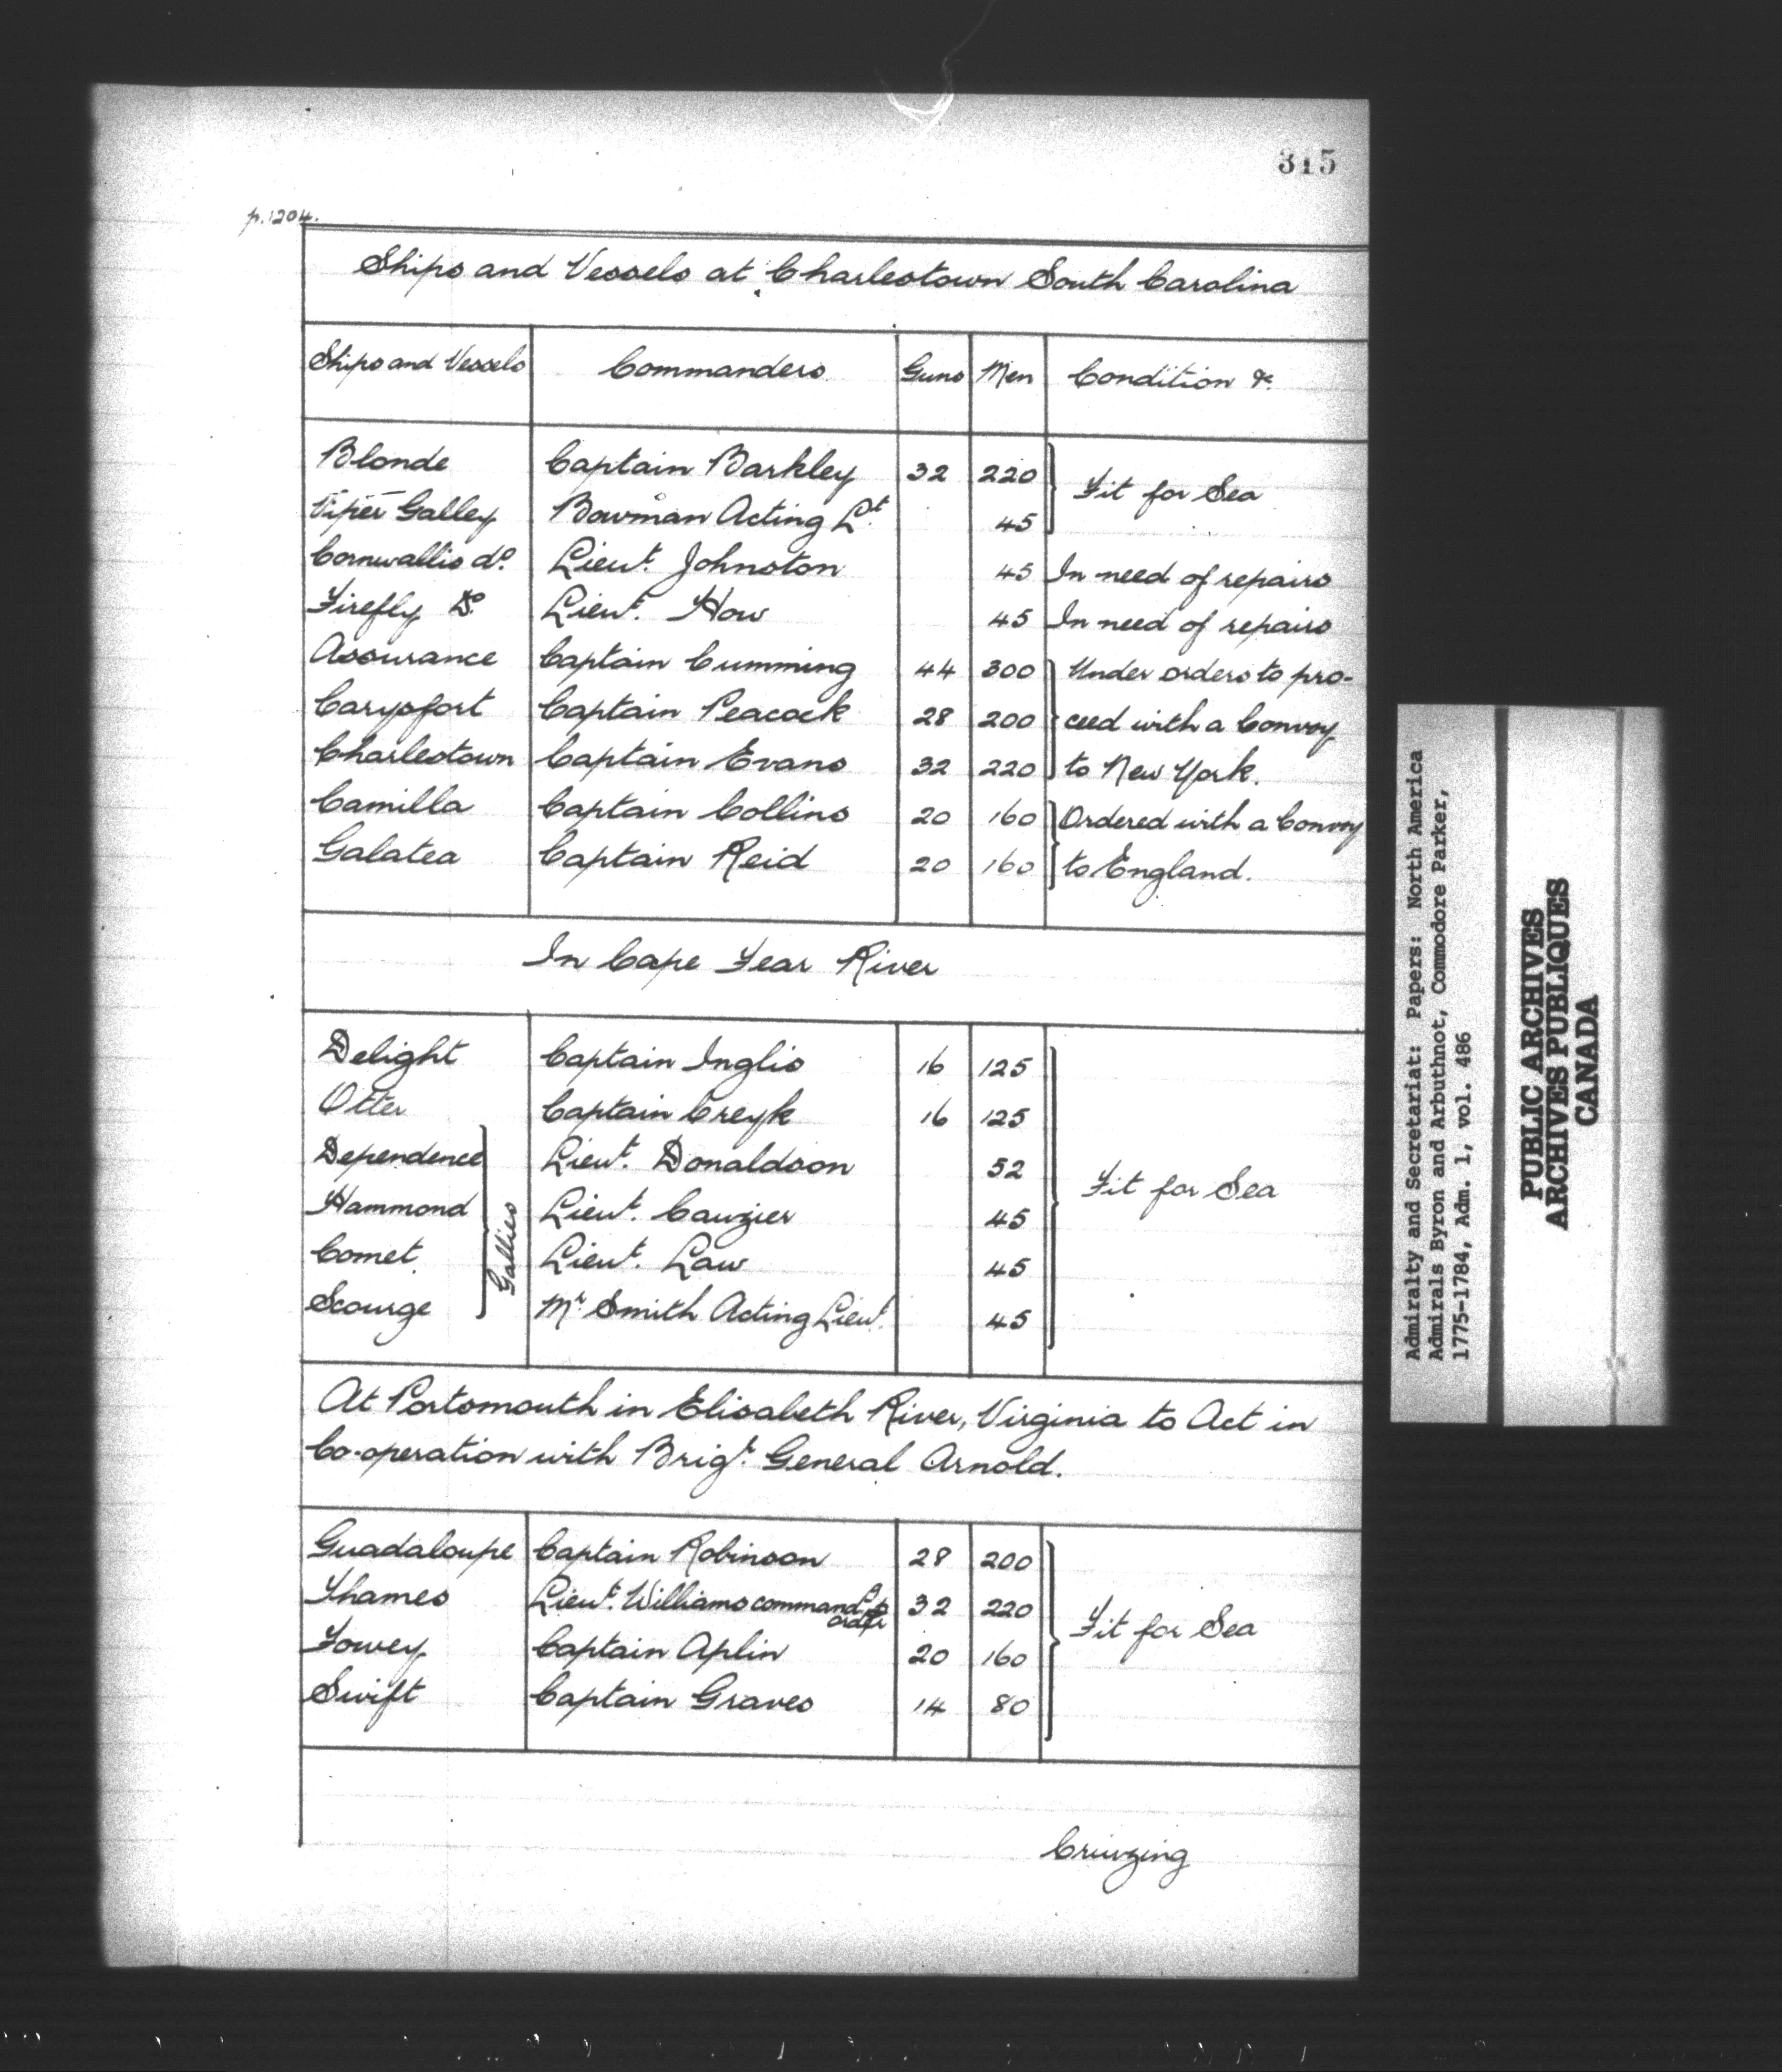 315
p. 1204.
Ships and Vessels at Charlestown South Carolina
Ships and Vessels Commanders Guns Men Condition &c.
Blonde Captain Barkley 32 220 Fit for Sea
Viper Galley Bowman Acting Lt. 45
Cornwallis do. Lieut. Johnston 45 In need of repairs
Firefly Do. Lieut. How 45 In need of repairs
Assurance Captain Cumming 44 300 Under orders to pro-
Carysfort Captain Peacock 28 200 ceed with a Convoy
Charlestown Captain Evans 32 220 to New York.
Camilla Captain Collins 20 160 Ordered with a Convoy
Galatea Captain Reid 20 160 to England.
In Cape Fear River
Delight Captain Inglis 16 125
Otter Captain Creyk 16 125
Dependence Lieut. Donaldson 52 Fit for Sea
Hammond Lieut. Cauzier 45
Comet Lieut. Law 45
Scourge Mr. Smith Acting Lieut. 45
Gallies
At Portsmouth in Elisabeth River, Virginia to Act in
Co-operation with Brigt. General Arnold.
Guadaloupe Captain Robinson 28 200
Thames Lieut. Williams command 32 220 Fit for Sea
Fowey Captain Aplin 20 160
Swift Captain Graves 14 80
Cruizing
Admiralty and Secretariat: Papers: North America
Admirals Byron and Arbuthnot, Commodore Parker,
1775-1784, Adm. 1, vol. 486
PUBLIC ARCHIVES
ARCHIVES PUBLIQUES
CANADA